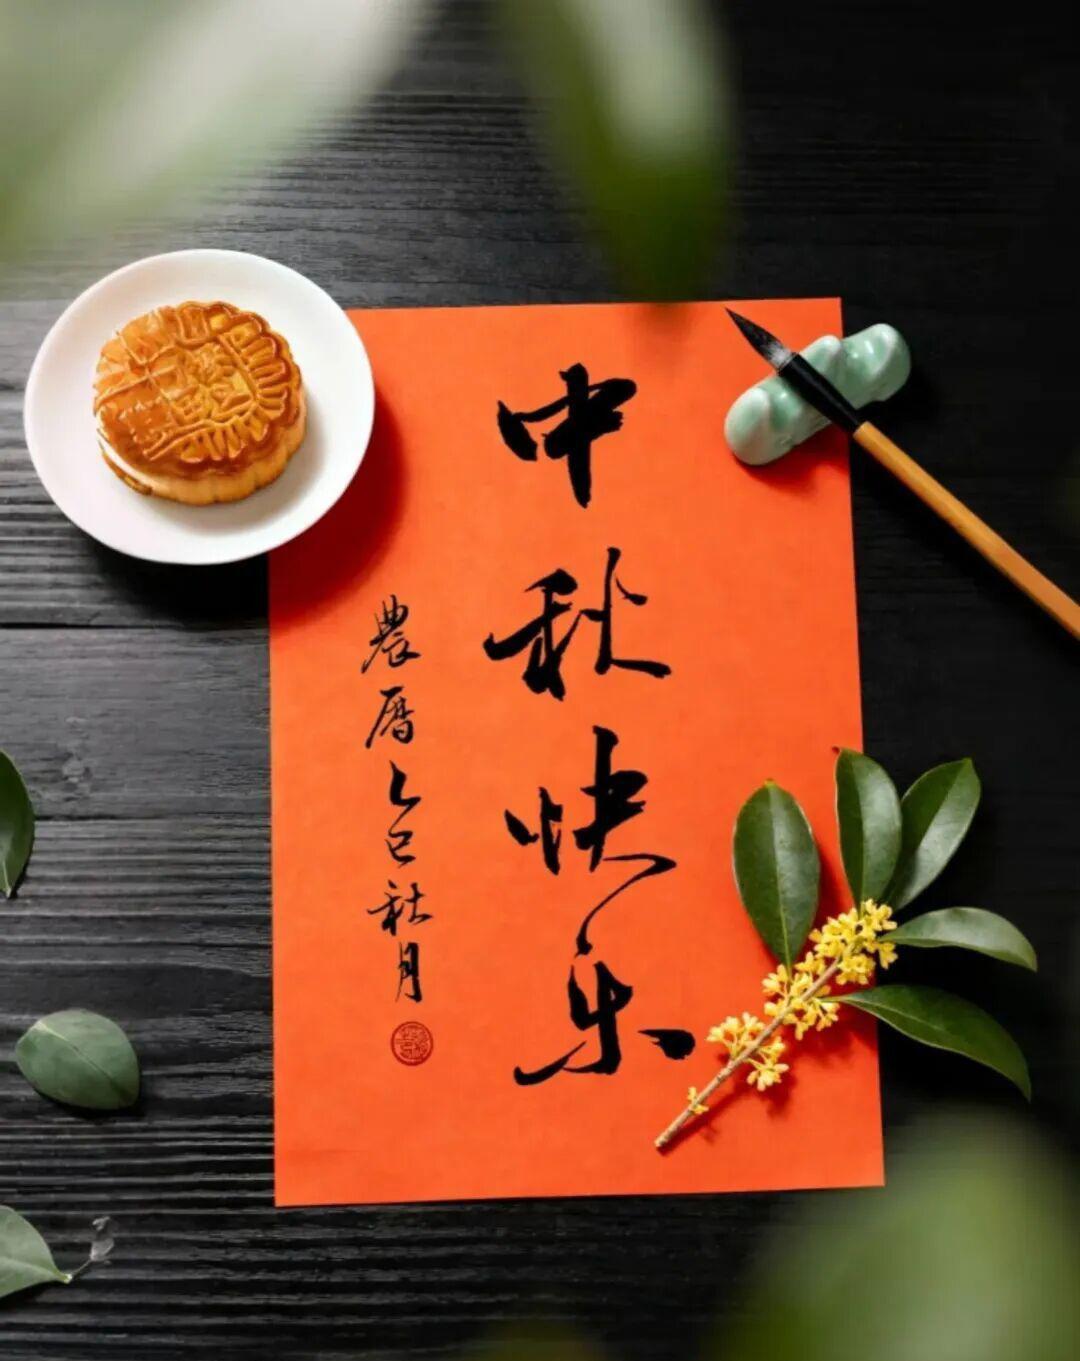 中秋快乐
農曆乙巳秋月